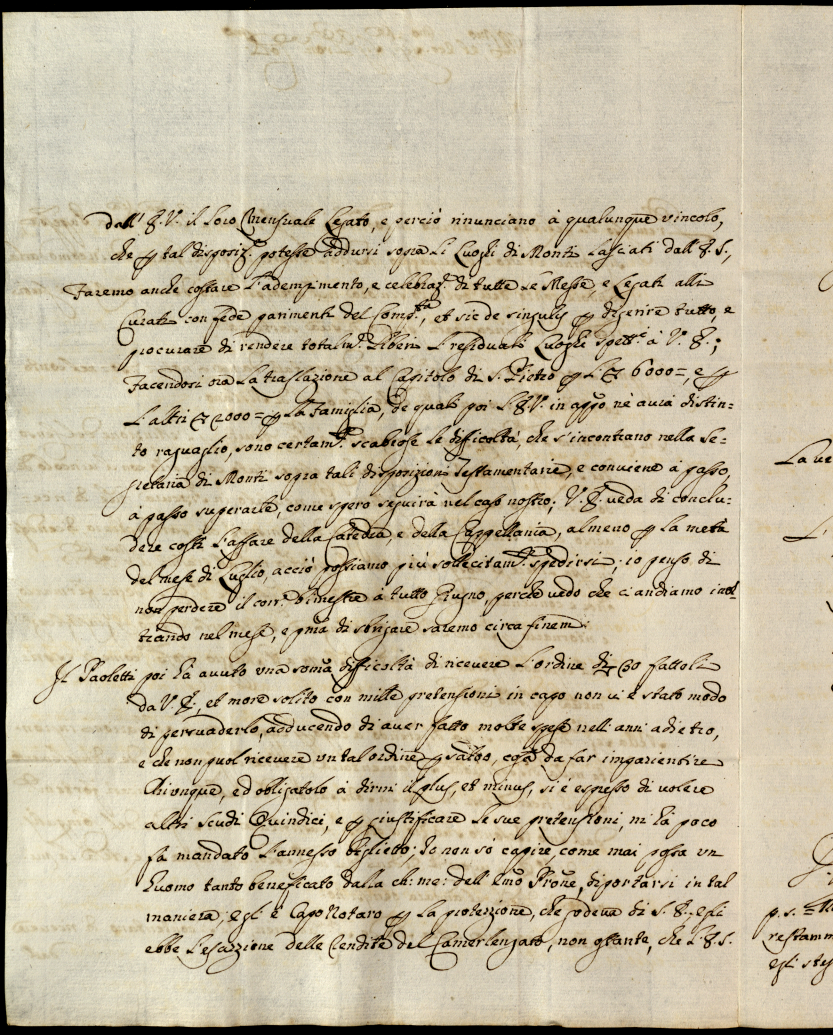 dall' E.V. il loro Mensuale Legato, e perciò rinunciano à qualunque vincolo,
che p tal disposiz.e potesse addursi sopra li Luoghi di Monti lasciati dall' E.S.,
Faremo anche costare l'adempimento, e celebraz.e di tutte le Messe, e Legati alli
Curati con fede parimenti del Comp.ta, et sic de singulis p diferire tutto, e
procurare di rendere totalm.te liberi l residuali Luoghi spett.i à V. E.;
Facendosi ora la traslazione al Capitolo di S. Pietro p l. 6000=, e p
l'altri 2000= p la Famiglia, de quali poi l'E.V. in app.o ne avrà distin=
to raguaglio, sono certam.te scabiose le difficoltà, che s'incontrano nella Se=
gretaria di Monti sopra tali disposizioni Testamentarie, e conviene à passo,
à passo superarle, come spero seguirà nel caso nostro; V. E. veda di conclu=
dere costì l'affare della Catedra, e della Cappellania, almeno p la metà
del mese di Luglio, acciò possiamo più sollecitam.te spedirsi; io penso di
non perdere il corr.e bimestre à tutto Giugno, perche vedo che ci andiamo inol
trando nel mese, e pma di sbrigare saremo circa finem:
Il Paoletti poi hà avuto una soma difficoltà di ricevere l'ordine di 30 fattoli
da V. E., et more solito con mille pretensioni in capo non vi è stato modo
di persuaderlo, adducendo di aver fatto molte spese nell' anni adietro,
e che non puol ricevere un tal ordine p saldo, cosa da far impazientire
chiunque, ed obligatolo à dirmi il plus, et minus, si è espresso di volere
altri scudi Quindici, e p giustificare le sue pretensioni, mi hà poco
fà mandato l'annesso biglietto; Io non sò capire, come mai possa un
huomo tanto beneficato dalla ch: me: dell' Emo Prone, diportarsi in tal
maniera; egli è Capo Notaro p la protezione, che godeva di S. E., egli
ebbe l'esazzione delle rendite del Camerlengato, non ostante, che l'E.S.
La ve
L'
p.s.
restamm
egli ste